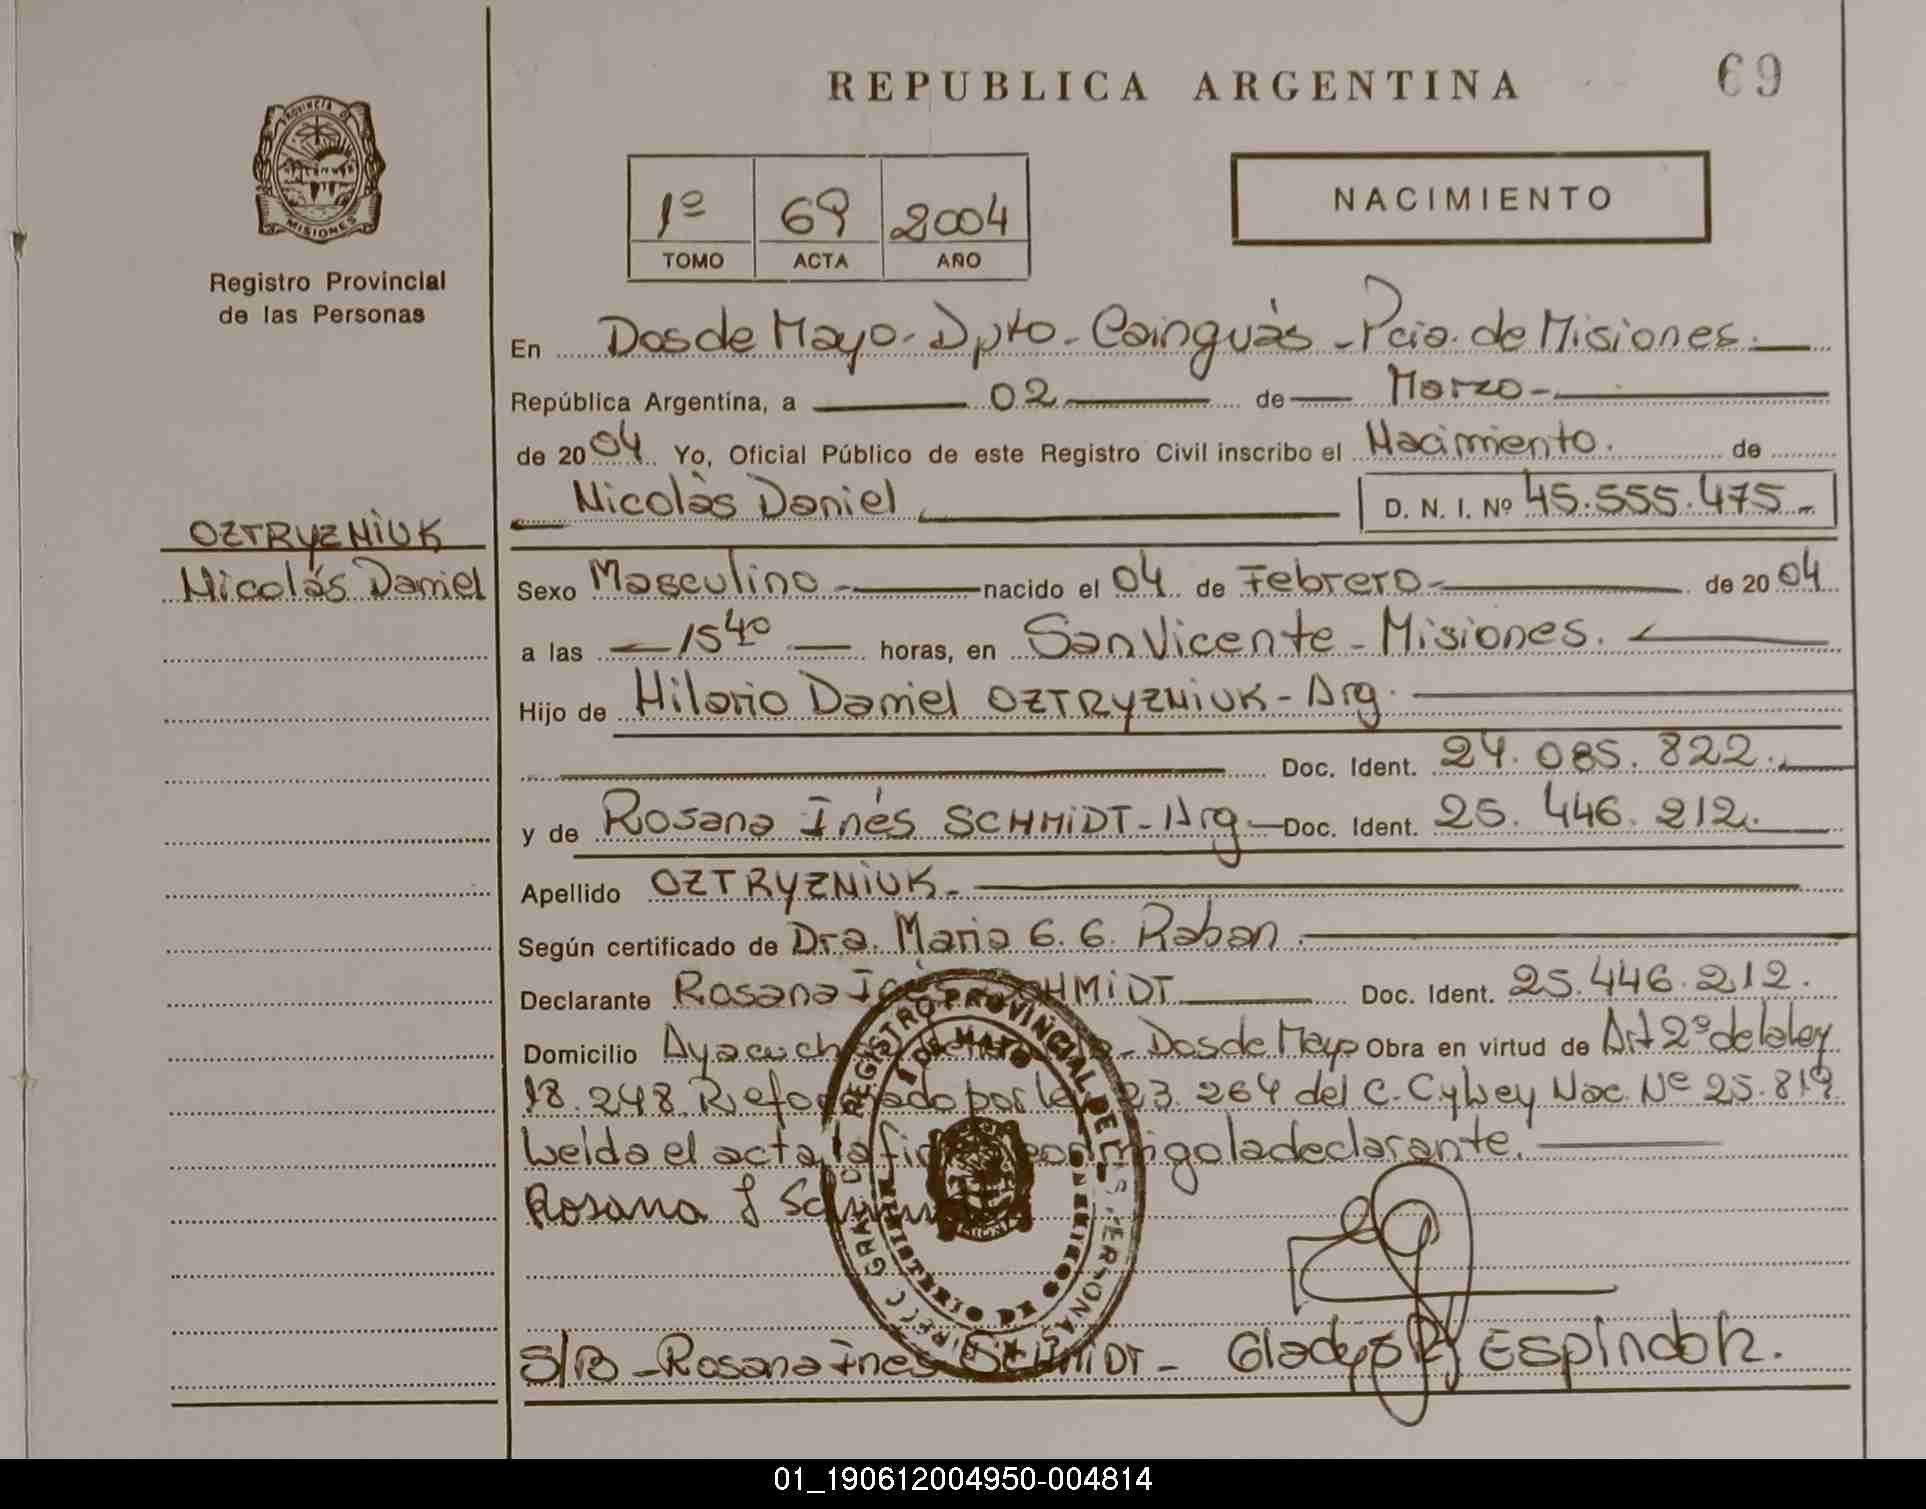 REPUBLICA ARGENTINA
69
PROVINCIA DE
MISIONES
Registro Provincial
de las Personas
1º 69 2004
TOMO ACTA AÑO
NACIMIENTO
En Dos de Mayo - Dpto - Cainguás - Pcia. de Misiones.
República Argentina, a 02 de Marzo
de 2004 Yo, Oficial Público de este Registro Civil inscribo el Nacimiento. de
Nicolás Daniel D. N. I. Nº 45.555.475
OZTRYZNIUK
Nicolás Daniel
Sexo Masculino nacido el 04 de Febrero de 2004
a las 15 40 horas, en San Vicente - Misiones.
Hijo de Hilario Daniel OZTRYZNIUK - Arg.
Doc. Ident. 24.085.822.
y de Rosana Inés SCHMIDT - Arg Doc. Ident. 25.446.212.
Apellido OZTRYZNIUK
Según certificado de Dra. Maria G. G. Raban.
Declarante Rosana Inés SCHMIDT Doc. Ident. 25.446.212.
Domicilio - Dos de Mayo Obra en virtud de Art 2º de la ley
18.248 Reformado por ley 23.264 del C. C y Ley Nac. Nº 25.819
Leída el acta, la firma conmigo la declarante.
Rosana I
REGISTRO PROVINCIAL DE LAS PERSONAS
DE MAYO
MINISTERIO DE GOBIERNO
S/B - Rosana Ines SCHMIDT - Gladys R. ESPINDOLA.
01_190612004950-004814